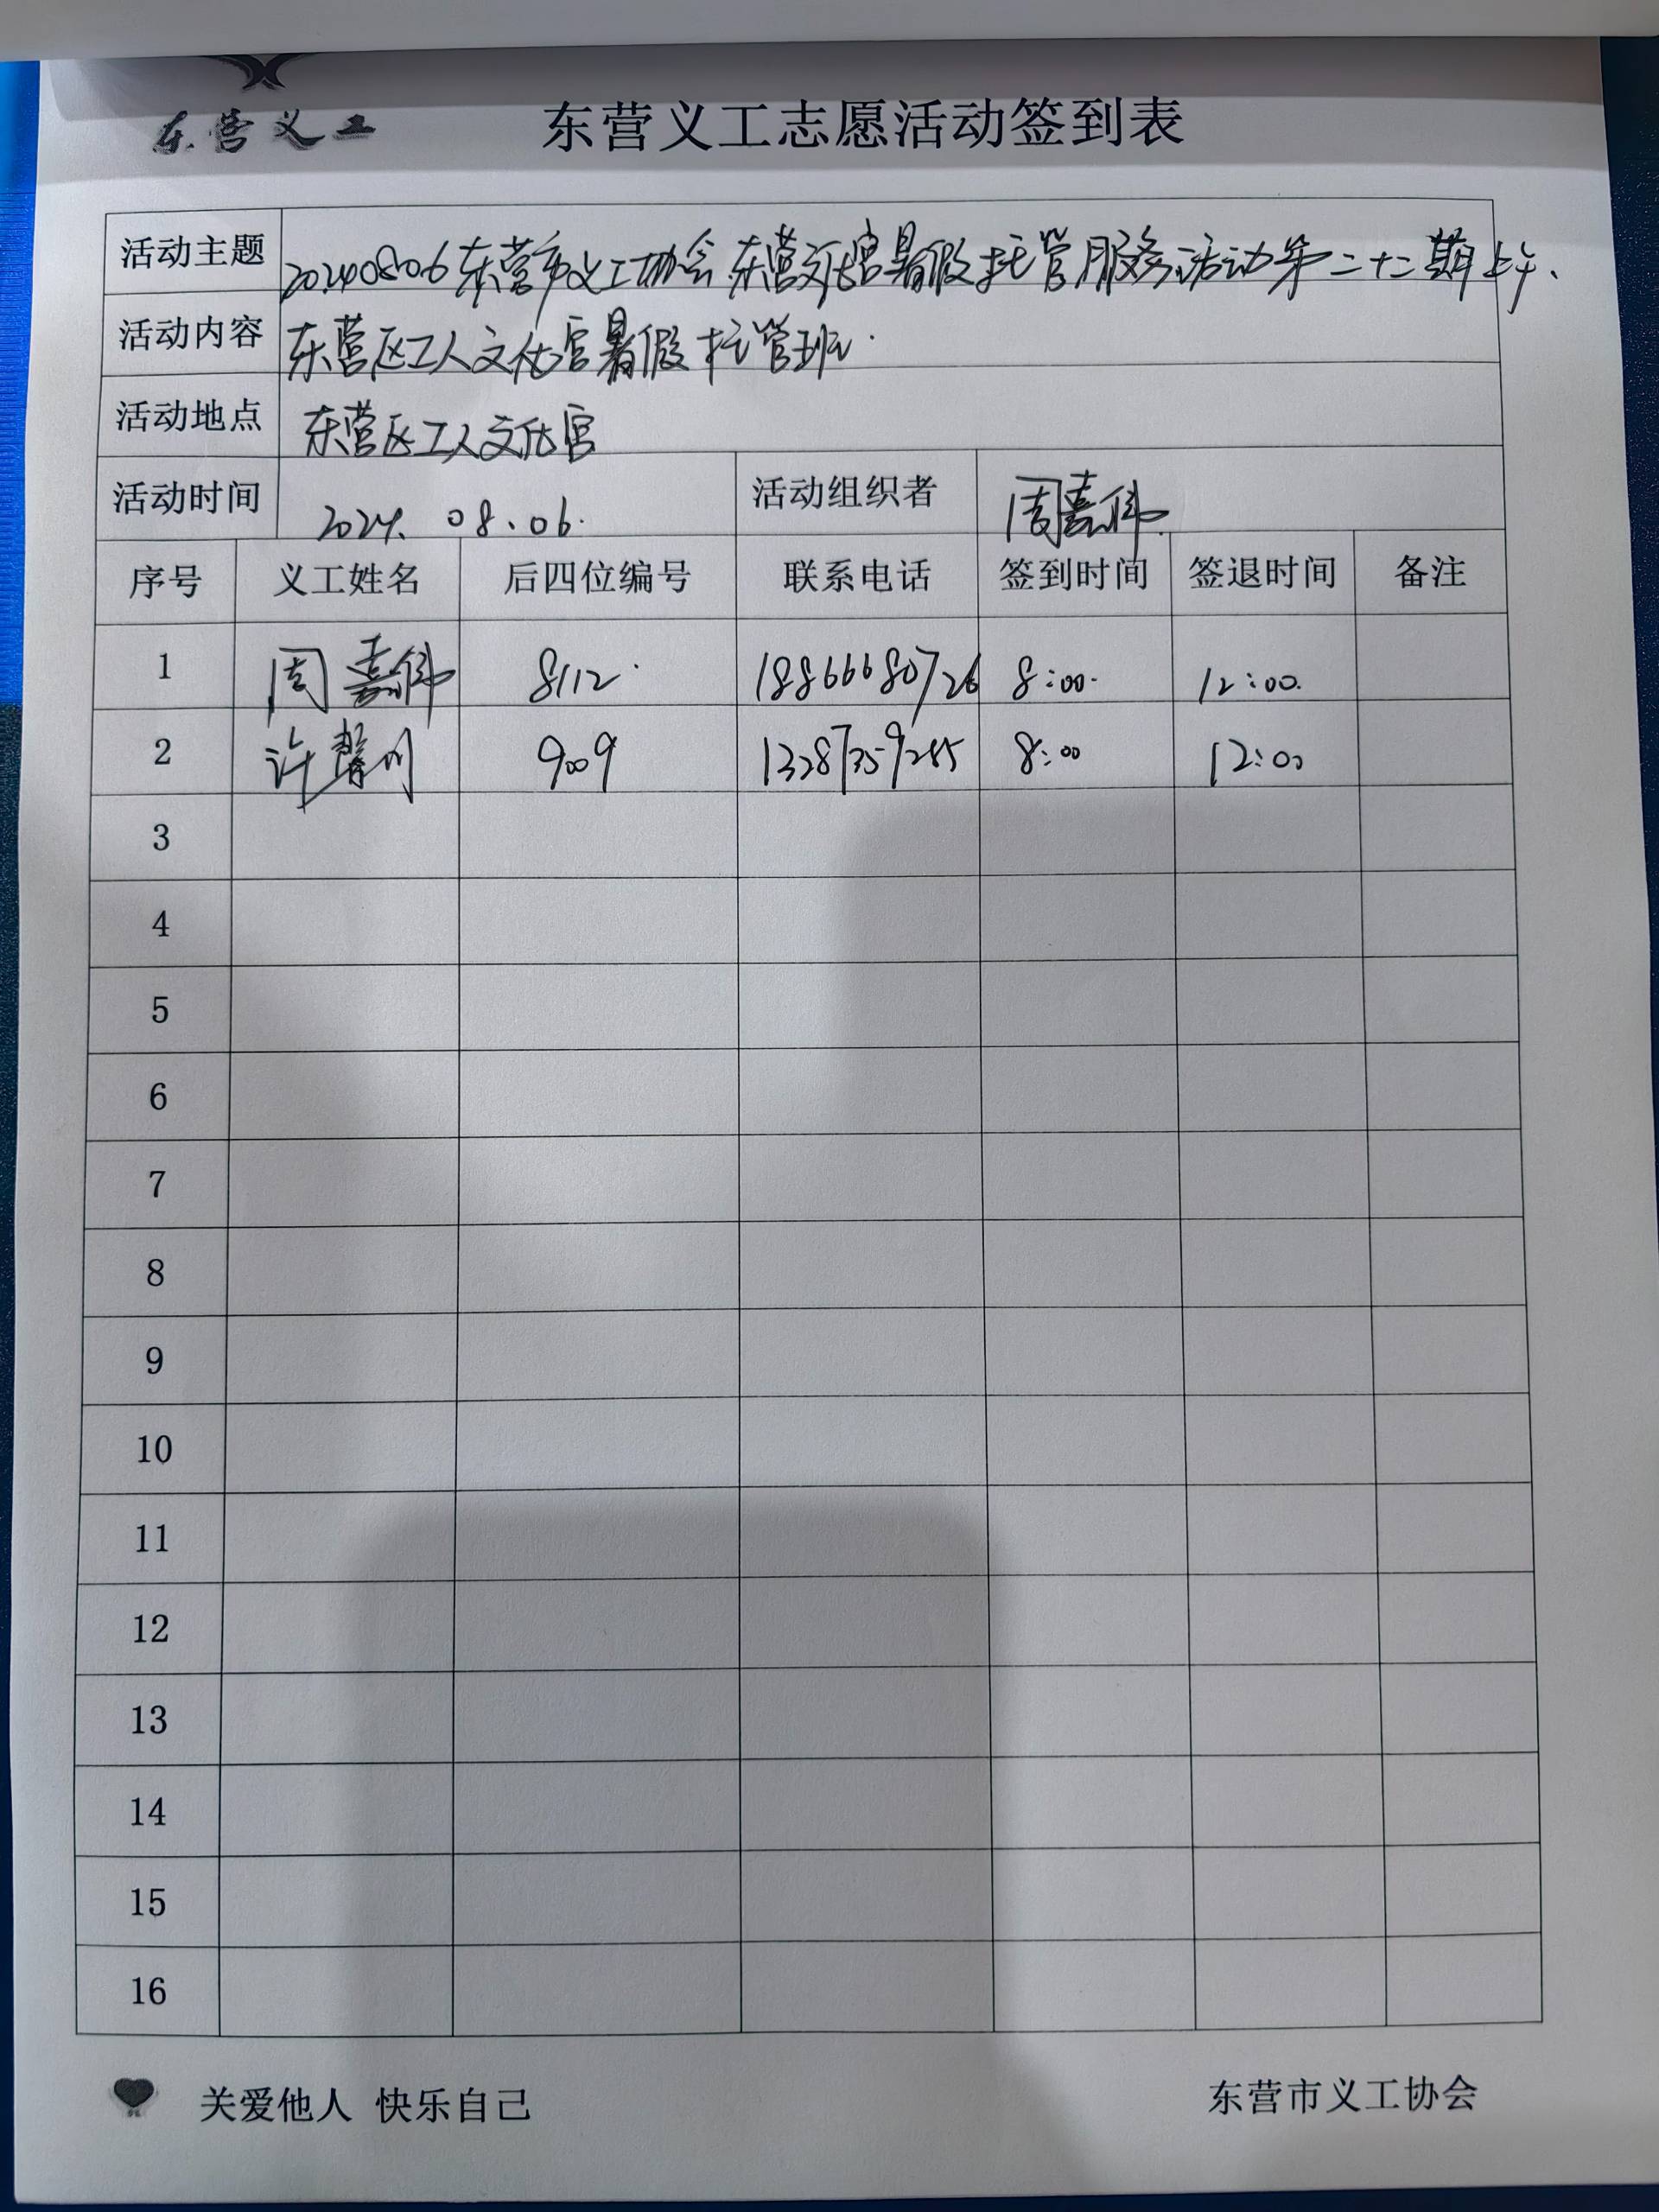 东营义工
东营义工志愿活动签到表
活动主题 20240806东营市义工协会东营文化宫暑假托管服务活动第二十二期上午、
活动内容 东营区工人文化宫暑假托管班.
活动地点 东营区工人文化宫
活动时间 2024. 08.06. 活动组织者 周嘉伟
序号 义工姓名 后四位编号 联系电话 签到时间 签退时间 备注
1 周嘉伟 8112 18866680726 8:00. 12:00.
2 许馨月 9009 8:00 12:00
3
4
5
6
7
8
9
10
11
12
13
14
15
16
关爱他人 快乐自己 东营市义工协会